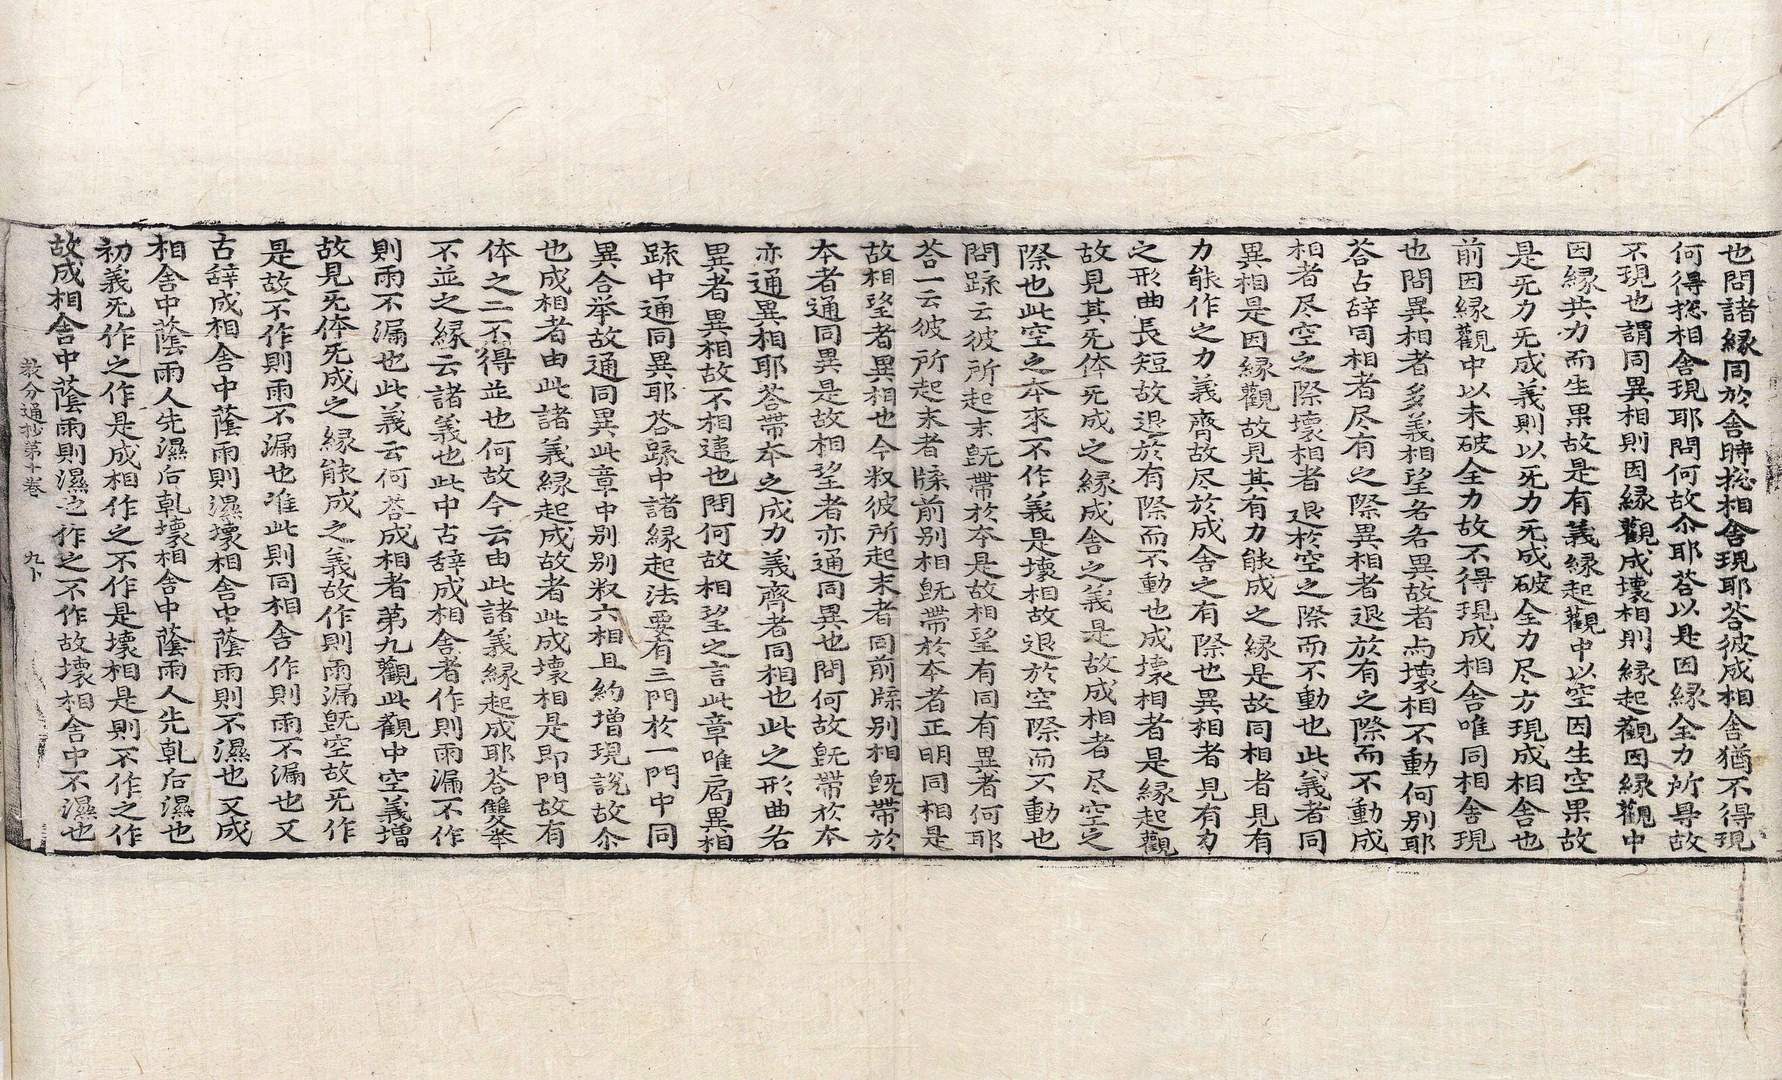 也問諸縁同於舎時捴相舎現耶荅彼成相舎猶不得現
何得捴相舎現耶問何故尒耶荅以是因縁全力所㝵故
不現也謂同異相則因縁觀成壞相則縁起觀因縁觀中
因縁共力而生果故是有義縁起觀中以空因生空果故
是旡力旡成義則以旡力旡成破全力尽方現成相舎也
前因縁觀中以未破全力故不得現成相舎唯同相舎現
也問異相者多義相望各各異故者与壞相不動何別耶
荅古辞同相者尽有之際異相者退於有之際而不動成
相者尽空之際壞相者退於空之際而不動也此義者同
異相是因縁觀故見其有力能成之縁是故同相者見有
力能作之力義齊故尽於成舎之有際也異相者見有力
之形曲長短故退於有際而不動也成壞相者是縁起觀
故見其旡体旡成之縁成舎之義是故成相者尽空之
際也此空之本來不作義是壞相故退於空際而不動也
問䟽云彼所起末旣帶於本是故相望有同有異者何耶
荅一云彼所起末者牒前別相旣帶於本者正明同相是
故相望者異相也今叙彼所起末者同前牒別相旣帶於
本者通同異是故相望者亦通同異也問何故旣帶於本
亦通異相耶荅帶本之成力義齊者同相也此之形曲各
異者異相故不相違也問何故相望之言此章唯局異相
䟽中通同異耶荅䟽中諸縁起法要有三門於一門中同
異合举故通同異此章中別別叙六相且約增現說故尒
也成相者由此諸義縁起成故者此成壞相是即門故有
体之二不得並也何故今云由此諸義縁起成耶荅雙举
不並之縁云諸義也此中古辞成相舎者作則雨漏不作
則雨不漏也此義云何荅成相者第九觀此觀中空義增
故見旡体旡成之縁能成之義故作則雨漏旣空故旡作
是故不作則雨不漏也准此則同相舎作則雨不漏也又
古辞成相舎中蔭雨則濕壞相舎中蔭雨則不濕也又成
相舎中蔭雨人先濕后乹壞相舎中蔭雨人先乹后濕也
初義旡作之作是成相作之不作是壞相是則不作之作
故成相舎中蔭雨則濕也作之不作故壞相舎中不濕也
教分通抄第十卷　九卜